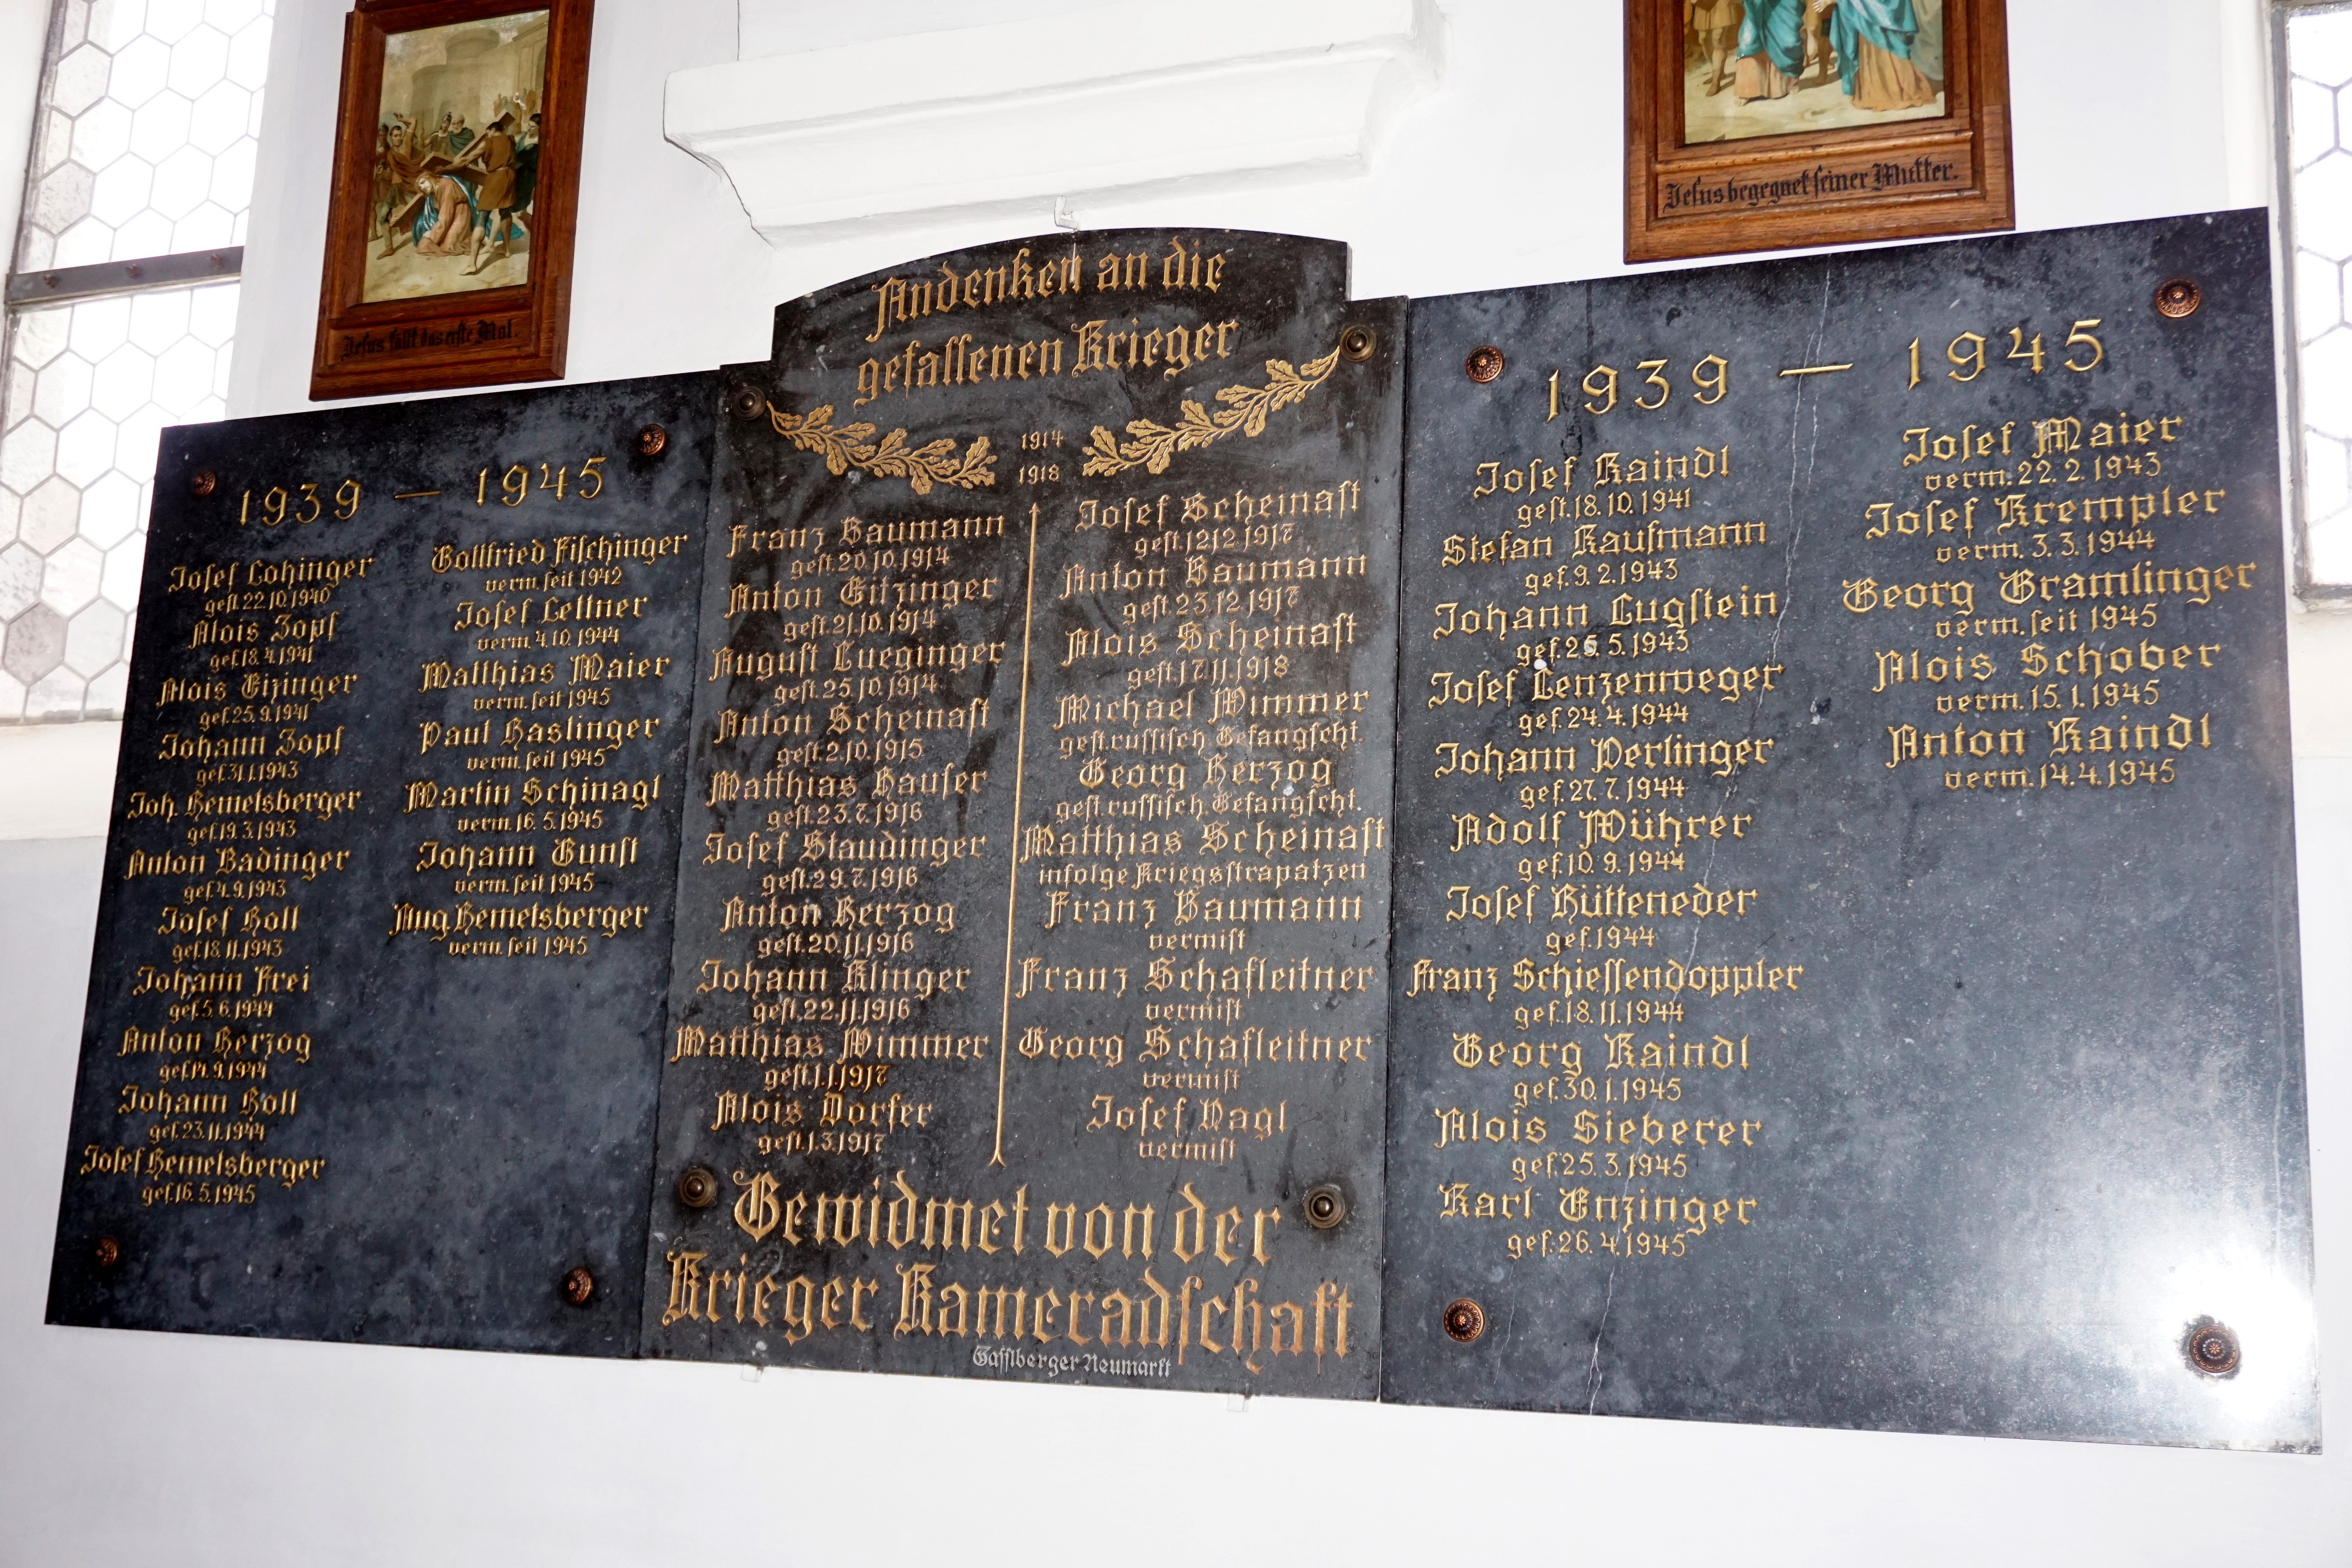 Jesus fällt das erste Mal.
Jesus begegnet seiner Mutter.
1939 — 1945
Josef Lohinger
gest. 22.10.1940
Alois Zopf
gef. 18.4.1941
Alois Eizinger
gef. 25.9.1941
Johann Zopf
gef. 31.1.1943
Joh. Hemetsberger
gef. 19.3.1943
Anton Badinger
gef. 4.9.1943
Josef Holl
gef. 18.11.1943
Johann Frei
gef. 5.6.1944
Anton Herzog
gef. 14.9.1944
Johann Holl
gef. 23.11.1944
Josef Hemetsberger
gef. 16.5.1945
Gottfried Fischinger
verm. seit 1942
Josef Lettner
verm. 4.10.1944
Matthias Maier
verm. seit 1945
Paul Haslinger
verm. seit 1945
Martin Schinagl
verm. 16.5.1945
Johann Gunst
verm. seit 1945
Aug. Hemetsberger
verm. seit 1945
Andenken an die
gefallenen Krieger
1914
1918
Franz Baumann
gest. 20.10.1914
Anton Eitzinger
gest. 21.10.1914
August Lueginger
gest. 25.10.1914
Anton Scheinast
gest. 2.10.1915
Matthias Hauser
gest. 23.7.1916
Josef Staudinger
gest. 29.7.1916
Anton Herzog
gest. 20.11.1916
Johann Klinger
gest. 22.11.1916
Matthias Wimmer
gest. 1.1.1917
Alois Dorfer
gest. 1.3.1917
Josef Scheinast
gest. 12.12.1917
Anton Baumann
gest. 23.12.1917
Alois Scheinast
gest. 17.11.1918
Michael Wimmer
gest. russisch. Gefangscht.
Georg Herzog
gest. russisch. Gefangscht.
Matthias Scheinast
infolge Kriegsstrapatzen
Franz Baumann
vermist
Franz Schafleitner
vermist
Georg Schafleitner
vermist
Josef Nagl
vermist
Gewidmet von der
Krieger Kameradschaft
Gasslberger Neumarkt
1939 — 1945
Josef Kaindl
gest. 18.10.1941
Stefan Kaufmann
gef. 9.2.1943
Johann Lugstein
gef. 25.5.1943
Josef Lenzenweger
gef. 24.4.1944
Johann Perlinger
gef. 27.7.1944
Adolf Mührer
gef. 10.9.1944
Josef Hütteneder
gef. 1944
Franz Schiessendoppler
gef. 18.11.1944
Georg Kaindl
gef. 30.1.1945
Alois Sieberer
gef. 25.3.1945
Karl Enzinger
gef. 26.4.1945
Josef Maier
verm. 22.2.1943
Josef Krempler
verm. 3.3.1944
Georg Gramlinger
verm. seit 1945
Alois Schober
verm. 15.1.1945
Anton Kaindl
verm. 14.4.1945